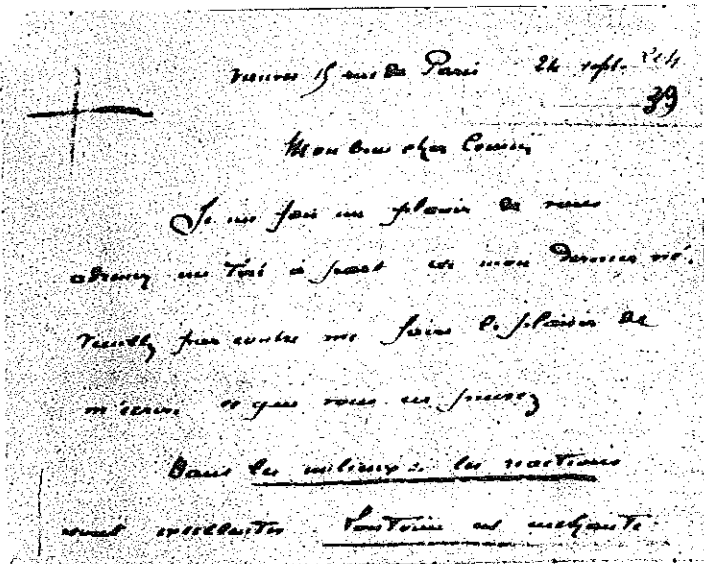 15 rue de Paris 24 sept.
39
Mon bien cher Cousin
Je me fais un plaisir de vous
adresser un Tiré à part de mon dernier né.
Veuillez par contre me faire le plaisir de
m'écrire ce que vous en pensez
Dans les milieux : les réactions
sont excellentes